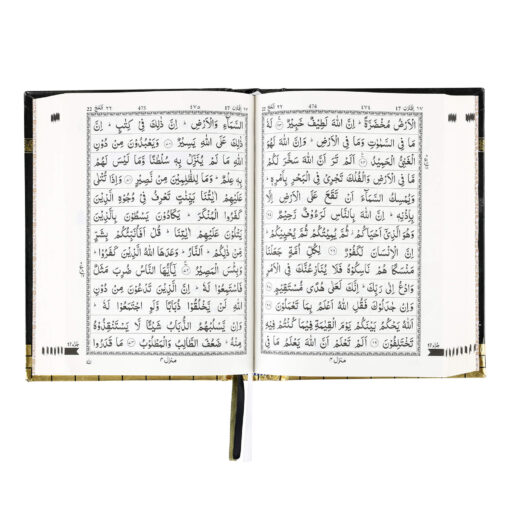 ٢٢ الحج 22 474 ٤٧٤ 17 اقترب ١٧
الْاَرْضُ مُخْضَرَّةً ؕ اِنَّ اللّٰهَ لَطِيْفٌ خَبِيْرٌ لَهٗ
مَا فِی السَّمٰوٰتِ وَمَا فِی الْاَرْضِ ؕ وَاِنَّ اللّٰهَ لَهُوَ
الْغَنِیُّ الْحَمِيْدُ اَلَمْ تَرَ اَنَّ اللّٰهَ سَخَّرَ لَكُمْ
مَّا فِی الْاَرْضِ وَالْفُلْكَ تَجْرِیْ فِی الْبَحْرِ بِاَمْرِهٖ ؕ
وَيُمْسِكُ السَّمَآءَ اَنْ تَقَعَ عَلَی الْاَرْضِ اِلَّا
بِاِذْنِهٖ ؕ اِنَّ اللّٰهَ بِالنَّاسِ لَرَءُوْفٌ رَّحِيْمٌ
وَهُوَ الَّذِیْۤ اَحْيَاكُمْ ؗ ثُمَّ يُمِيْتُكُمْ ثُمَّ يُحْيِيْكُمْ ؕ
اِنَّ الْاِنْسَانَ لَكَفُوْرٌ لِكُلِّ اُمَّةٍ جَعَلْنَا
مَنْسَكًا هُمْ نَاسِكُوْهُ فَلَا يُنَازِعُنَّكَ فِی الْاَمْرِ
وَادْعُ اِلٰی رَبِّكَ ؕ اِنَّكَ لَعَلٰی هُدًی مُّسْتَقِيْمٍ
وَاِنْ جَادَلُوْكَ فَقُلِ اللّٰهُ اَعْلَمُ بِمَا تَعْمَلُوْنَ
اَللّٰهُ يَحْكُمُ بَيْنَكُمْ يَوْمَ الْقِيٰمَةِ فِيْمَا كُنْتُمْ فِيْهِ
تَخْتَلِفُوْنَ اَلَمْ تَعْلَمْ اَنَّ اللّٰهَ يَعْلَمُ مَا فِی
منزل ٤
٢٢ الحج 22 475 ٤٧٥ 17 اقترب ١٧
السَّمَآءِ وَالْاَرْضِ ؕ اِنَّ ذٰلِكَ فِیْ كِتٰبٍ ؕ اِنَّ
ذٰلِكَ عَلَی اللّٰهِ يَسِيْرٌ وَيَعْبُدُوْنَ مِنْ دُوْنِ
اللّٰهِ مَا لَمْ يُنَزِّلْ بِهٖ سُلْطٰنًا وَّمَا لَيْسَ لَهُمْ
بِهٖ عِلْمٌ ؕ وَمَا لِلظّٰلِمِيْنَ مِنْ نَّصِيْرٍ وَاِذَا تُتْلٰی
عَلَيْهِمْ اٰيٰتُنَا بَيِّنٰتٍ تَعْرِفُ فِیْ وُجُوْهِ الَّذِيْنَ
كَفَرُوا الْمُنْكَرَ ؕ يَكَادُوْنَ يَسْطُوْنَ بِالَّذِيْنَ
يَتْلُوْنَ عَلَيْهِمْ اٰيٰتِنَا ؕ قُلْ اَفَاُنَبِّئُكُمْ بِشَرٍّ
مِّنْ ذٰلِكُمْ ؕ اَلنَّارُ ؕ وَعَدَهَا اللّٰهُ الَّذِيْنَ كَفَرُوْا ؕ
وَبِئْسَ الْمَصِيْرُ يٰۤاَيُّهَا النَّاسُ ضُرِبَ مَثَلٌ
فَاسْتَمِعُوْا لَهٗ ؕ اِنَّ الَّذِيْنَ تَدْعُوْنَ مِنْ دُوْنِ
اللّٰهِ لَنْ يَّخْلُقُوْا ذُبَابًا وَّلَوِ اجْتَمَعُوْا لَهٗ ؕ
وَاِنْ يَّسْلُبْهُمُ الذُّبَابُ شَيْئًا لَّا يَسْتَنْقِذُوْهُ
مِنْهُ ؕ ضَعُفَ الطَّالِبُ وَالْمَطْلُوْبُ مَا قَدَرُوا
منزل ٤